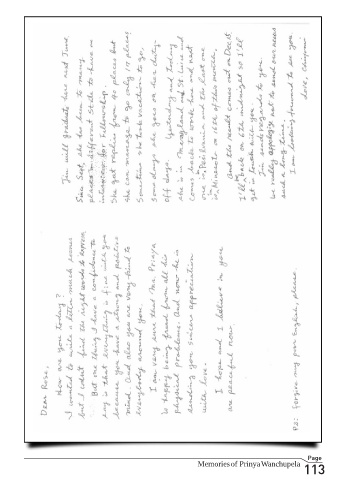 Dear Rose,
How are you today?
I wanted to write a letter much sooner
but I didn't find the right words to express.
But one thing I have a confidence to
say is that everything is fine with you
because you have a strong and positive
mind. And also you are very kind to
everybody around you.
I am very sure that Mr. Prinya
is happy being freed from all his
physical problems. And now he is
sending you sincere appreciation
with love.
I hope and I believe in you
are peaceful now.
P.S: Forgive my poor English, please
Jim will graduate here next June.
Since Sept, she has been to many
places in different State to have an
interview for Fellowship.
She got replies from 40 places but
she can manage to go only 17 places
Sometimes she took vacation to go,
Some days she goes on her duty-
off days. Yesterday and today
she is in Maryland and St Louis and
comes back to work here and next
one in Pensylvania and the last one
in Minnesota on 16th of this month.
And the result comes out on Dec 6.
I'll back on 6th midnight so I'll
get in touch with you
Jim sends regards to you.
We really apologize not to send our news
such a long time.
I am looking forward to see you
love,
Memories of Prinya Wanchupela
Page
113